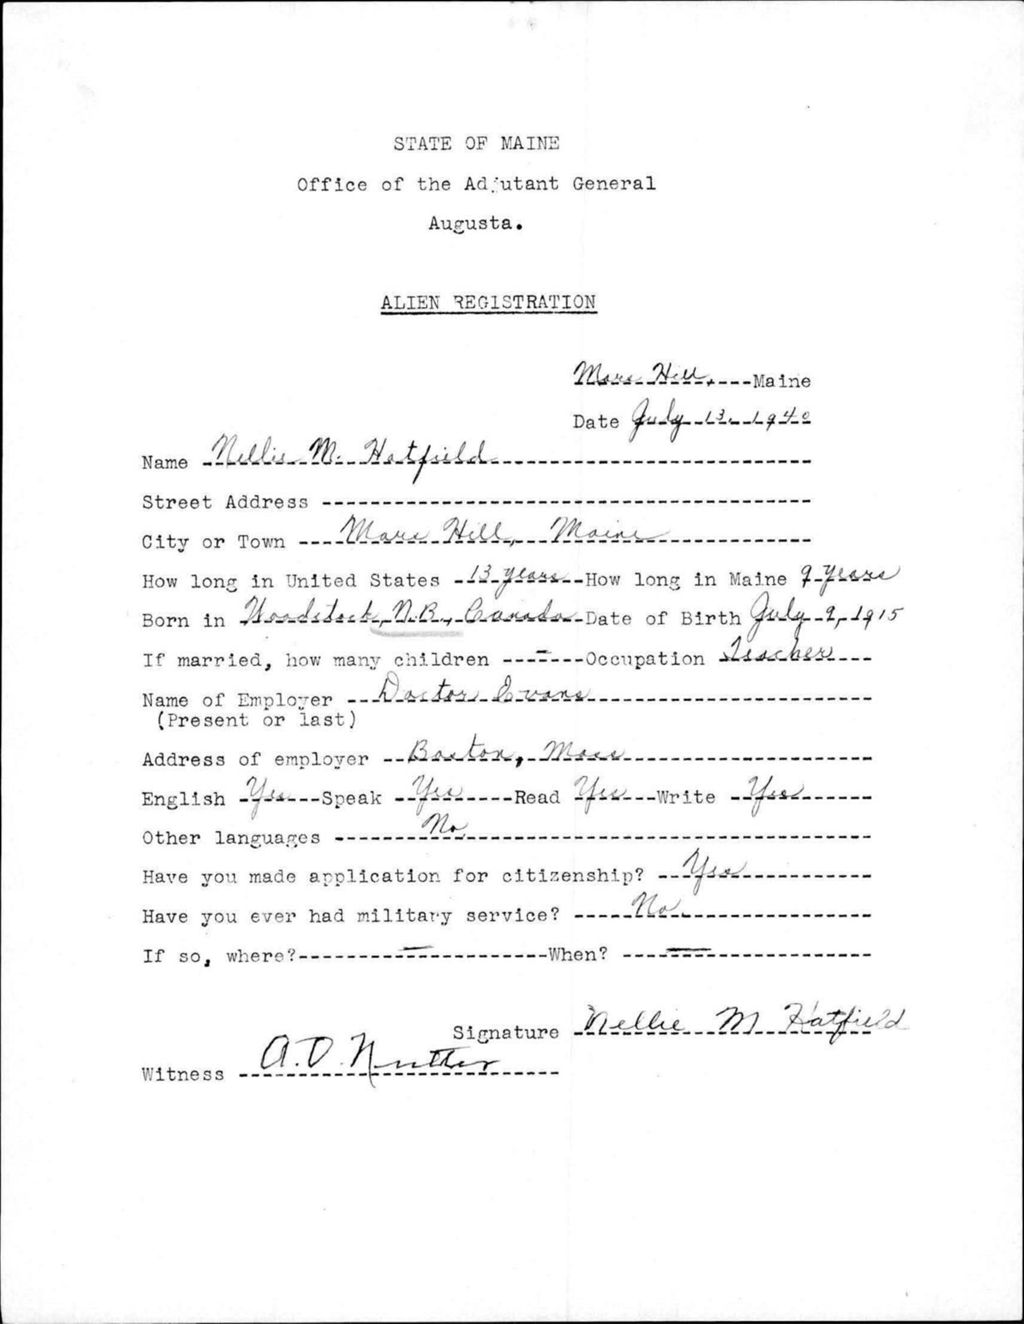 STATE OF MAINE
Office of the Adjutant General
Augusta.
ALIEN REGISTRATION
Mars Hill, Maine
Date July 13, 1940
Name Nellie M. Hatfield
Street Address
City or Town Mars Hill, Maine
How long in United States 13 years How long in Maine 9 years
Born in Woodstock, N.B., Canada Date of Birth July 9, 1915
If married, how many children - Occupation Teacher
Name of Employer Doctor Evans
(Present or last)
Address of employer Boston, Mass
English Yes Speak Yes Read Yes Write Yes
Other languages No
Have you made application for citizenship? Yes
Have you ever had military service? No.
If so, where? - When? -
Signature Nellie M Hatfield
Witness A. D. Nutter